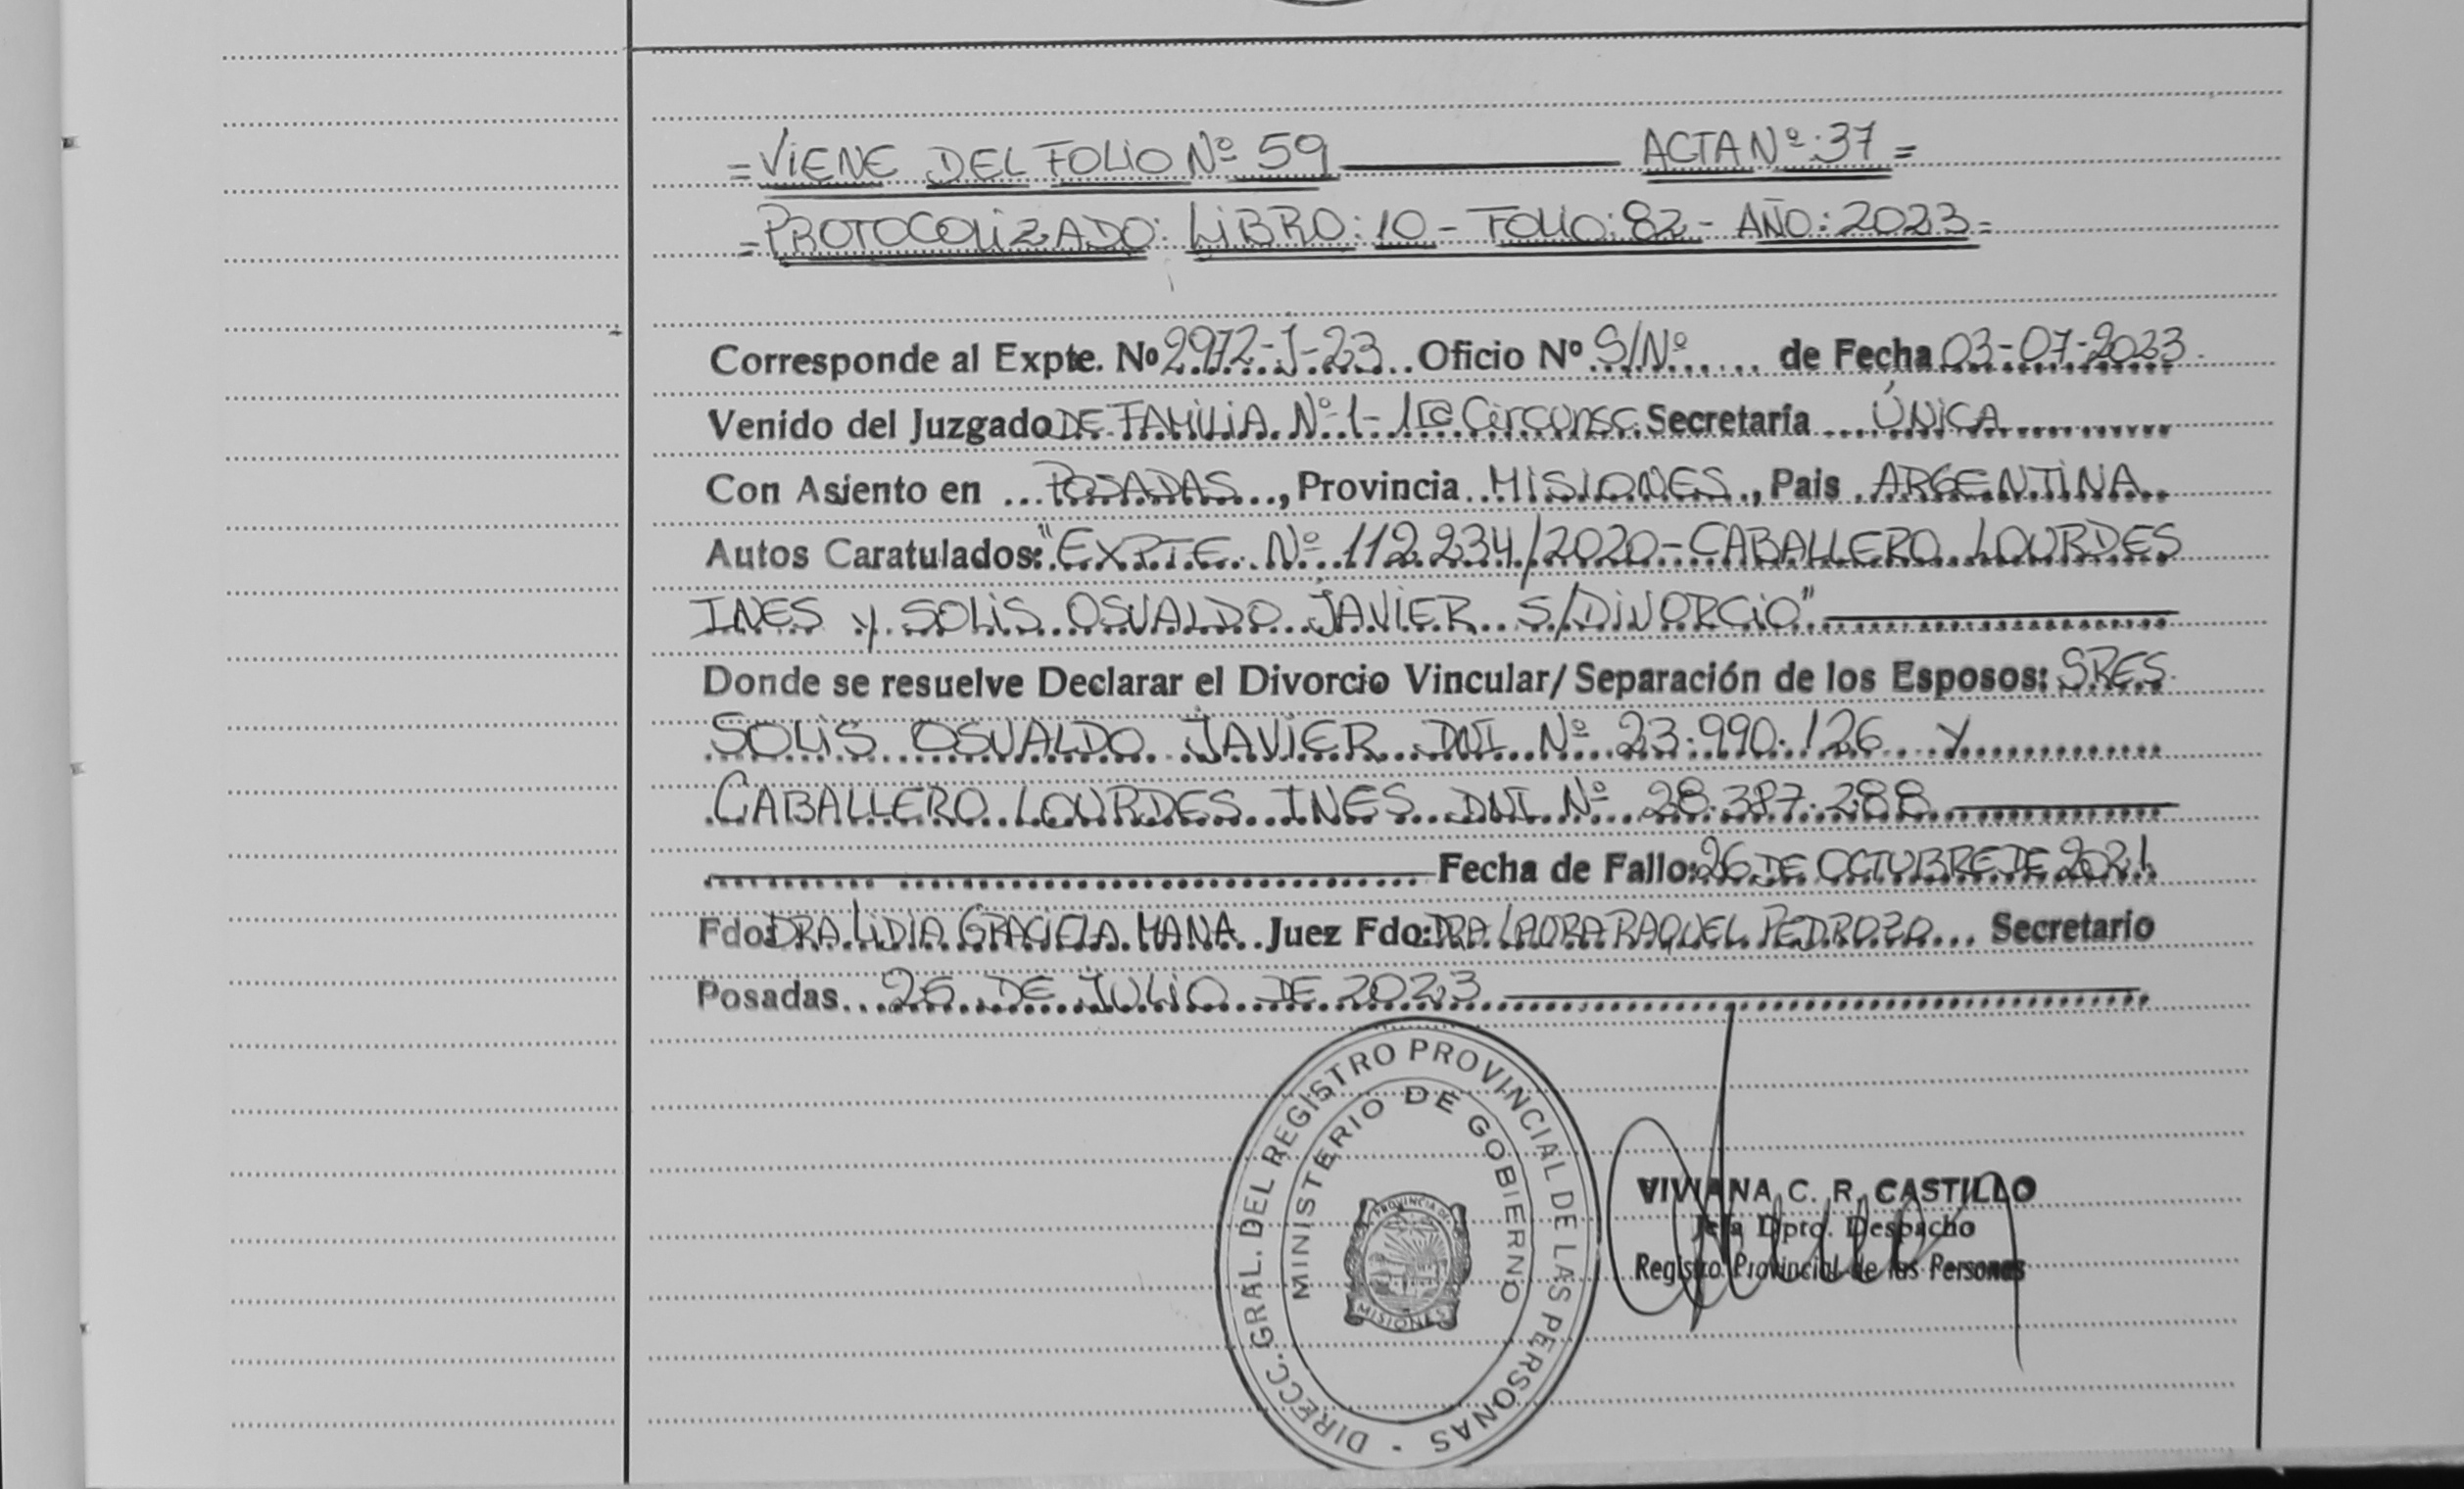 =VIENE DEL FOLIO Nº 59 ACTA Nº:37=
=PROTOCOLIZADO: LIBRO:10-FOLIO:82-AÑO:2023=
Corresponde al Expte. Nº 2972-J-23 Oficio Nº S/Nº de Fecha 03-07-2023
Venido del Juzgado DE FAMILIA Nº1-1ra Circunsc. Secretaría ÚNICA
Con Asiento en POSADAS, Provincia MISIONES, Pais ARGENTINA
Autos Caratulados: "EXPTE. Nº 112234/2020-CABALLERO LOURDES
INES y SOLIS OSVALDO JAVIER S/DIVORCIO"
Donde se resuelve Declarar el Divorcio Vincular/Separación de los Esposos: SRES.
SOLIS OSVALDO JAVIER DNI Nº 23.990.126 y
CABALLERO LOURDES INES DNI Nº 28.387.288
Fecha de Fallo: 26 DE OCTUBRE DE 2021.
Fdo: DRA LIDIA GRACIELA MANA Juez Fdo: DRA LAURA RAQUEL PEDROZO Secretario
Posadas 26 DE JULIO DE 2023
DIRECC. GRAL. DEL REGISTRO PROVINCIAL DE LAS PERSONAS -
MINISTERIO DE GOBIERNO
PROVINCIA DE
MISIONES
VIVIANA C. R. CASTILLO
Jefa Dpto. Despacho
Registro Provincial de las Personas